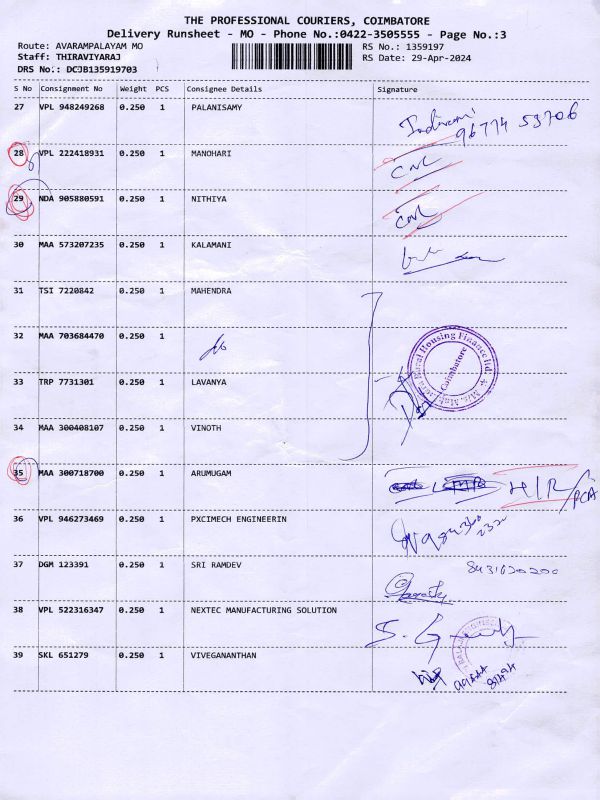 THE PROFESSIONAL COURIERS, COIMBATORE
Delivery Runsheet - MO - Phone No.:0422-3505555 - Page No.:3
Route: AVARAMPALAYAM MO RS No.: 1359197
Staff: THIRAVIYARAJ RS Date: 29-Apr-2024
DRS No.: DCJB135919703
S No Consignment No Weight PCS Consignee Details Signature
27 VPL 948249268 0.250 1 PALANISAMY
28 VPL 222418931 0.250 1 MANOHARI
29 NDA 905880591 0.250 1 NITHIYA
30 MAA 573207235 0.250 1 KALAMANI
31 TSI 7220842 0.250 1 MAHENDRA
32 MAA 703684470 0.250 1
33 TRP 7731301 0.250 1 LAVANYA
Rural Housing Finance ltd
Coimbatore
34 MAA 300408107 0.250 1 VINOTH
35 MAA 300718700 0.250 1 ARUMUGAM
36 VPL 946273469 0.250 1 PXCIMECH ENGINEERIN
37 DGM 123391 0.250 1 SRI RAMDEV
38 VPL 522316347 0.250 1 NEXTEC MANUFACTURING SOLUTION
39 SKL 651279 0.250 1 VIVEGANANTHAN